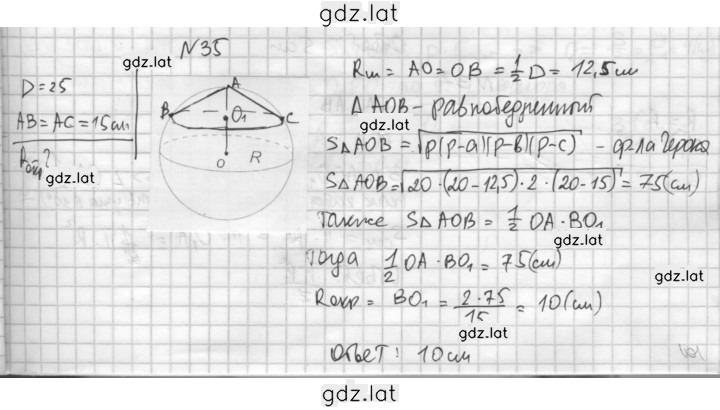 gdz.lat
N35
gdz.lat
D=25
AB=AC=15см
?
gdz.lat
A
B
O₁
C
O
R
Rш = AO=OB = 1/2 D = 12,5см
△ AOB - равнобедренный
gdz.lat
S△AOB = √p(p-a)(p-b)(p-c) - ф-ла Герона
S△AOB = √20·(20-12,5)·2·(20-15) = 75(см)
также S△AOB = 1/2 OA·BO₁
gdz.lat
Тогда 1/2 OA·BO₁ = 75(см)
gdz.lat
Rокр = BO₁ = 2·75/15 = 10(см)
gdz.lat
Ответ: 10см
gdz.lat